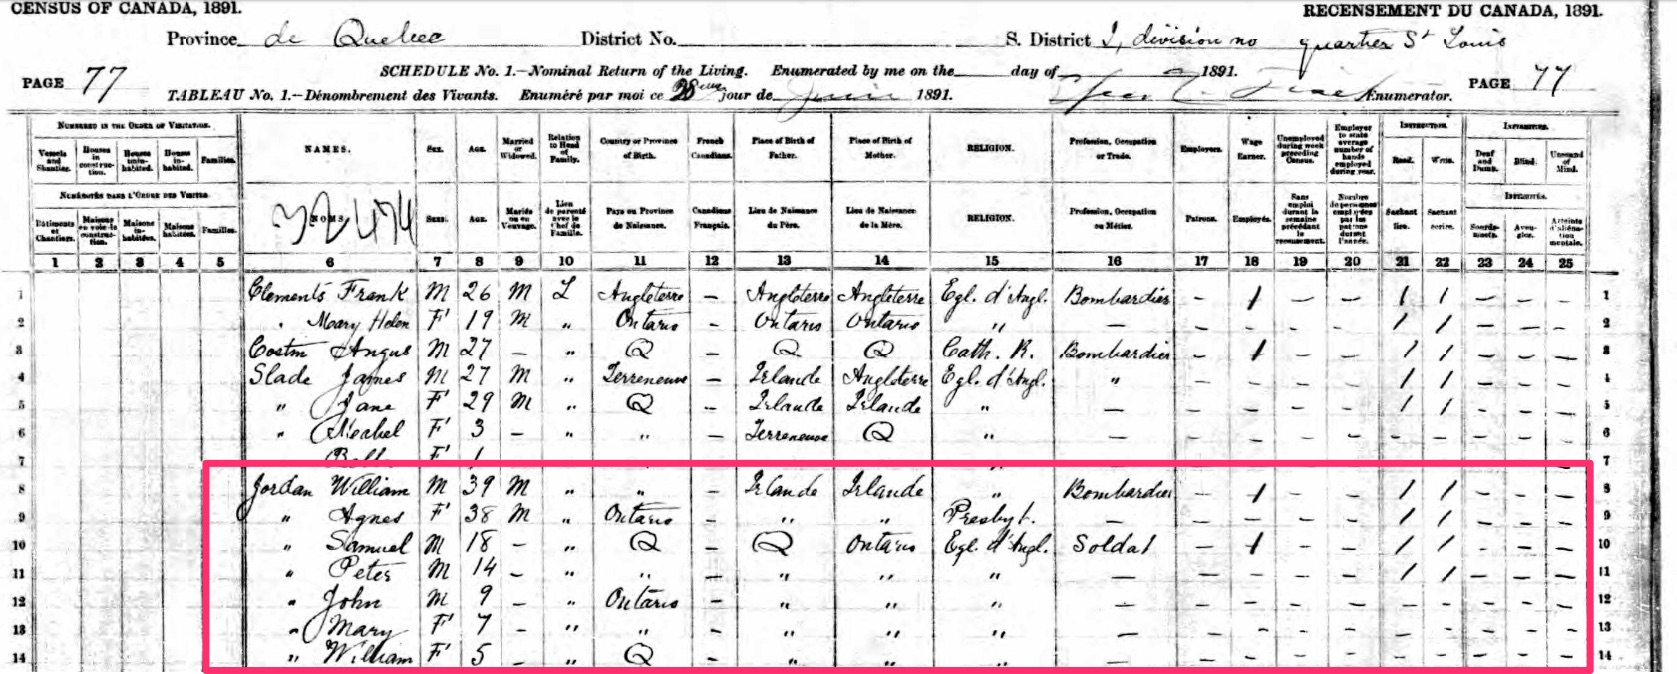 CENSUS OF CANADA, 1891. RECENSEMENT DU CANADA, 1891.
Province de Quebec District No. S. District I, division no quartier St Louis
SCHEDULE No. 1.—Nominal Return of the Living. Enumerated by me on the day of 1891.
PAGE 77 PAGE 77
TABLEAU No. 1.—Dénombrement des Vivants. Enuméré par moi ce 28eme jour de Juin 1891. Enumerator.
NUMBERED IN THE ORDER OF VISITATION. INSTRUCTION. INFIRMITIES.
Vessels and Shanties. Houses in construction. Houses uninhabited. Houses inhabited. Families. NAMES. SEX. AGE. Married or Widowed. Relation to Head of Family. Country or Province of Birth. French Canadians. Place of Birth of Father. Place of Birth of Mother. RELIGION. Profession, Occupation or Trade. Employers. Wage Earner. Unemployed during week preceding Census. Employer to state average number of hands employed during year. Read. Write. Deaf and Dumb. Blind. Unsound of Mind.
NUMÉROTÉS DANS L'ORDRE DES VISITES. INFIRMITÉS.
Bâtiments et Chantiers. Maisons en voie de construction. Maisons inhabitées. Maisons habitées. Familles. NOMS. SEXE. AGE. Mariés ou en Veuvage. Lien de parenté avec le Chef de Famille. Pays ou Province de Naissance. Canadiens Français. Lieu de Naissance du Père. Lieu de Naissance de la Mère. RELIGION. Profession, Occupation ou Métier. Patrons. Employés. Sans emploi durant la semaine précédant le recensement. Nombre de personnes employées par les patrons durant l'année. Sachant lire. Sachant écrire. Sourds-muets. Aveugles. Atteints d'aliénation mentale.
32474
1 2 3 4 5 6 7 8 9 10 11 12 13 14 15 16 17 18 19 20 21 22 23 24 25
1 Clements Frank M 26 M L Angleterre — Angleterre Angleterre Egl. d'Angl. Bombardier — 1 — — 1 1 — — — 1
2 " Mary Helen F 19 M " Ontario — Ontario Ontario " — — — — — 1 1 — — — 2
3 Angus M 27 — " Q — Q Q Cath. R. Bombardier — 1 — — 1 1 — — — 3
4 Slade James M 27 M " Terreneuve — Irlande Angleterre Egl. d'Angl. " — — — — 1 1 — — — 4
5 " Jane F 29 M " Q — Irlande Irlande " — — — — — 1 1 — — — 5
6 " F 3 — " " — Terreneuve Q " — — — — — — — — — — 6
7 F 1 " 7
8 Jordan William M 39 M " " — Irlande Irlande " Bombardier — 1 — — 1 1 — — — 8
9 " Agnes F 38 M " Ontario — " " Presbyt. — — — — — 1 1 — — — 9
10 " Samuel M 18 — " Q — Q Ontario Egl. d'Angl. Soldat — 1 — — 1 1 — — — 10
11 " Peter M 14 — " " — " " " — — — — — 1 1 — — — 11
12 " John M 9 — " Ontario — " " " — — — — — — — — — — 12
13 " Mary F 7 — " " — " " " — — — — — — — — — — 13
14 " William F 5 — " Q — " " " — — — — — — — — — — 14